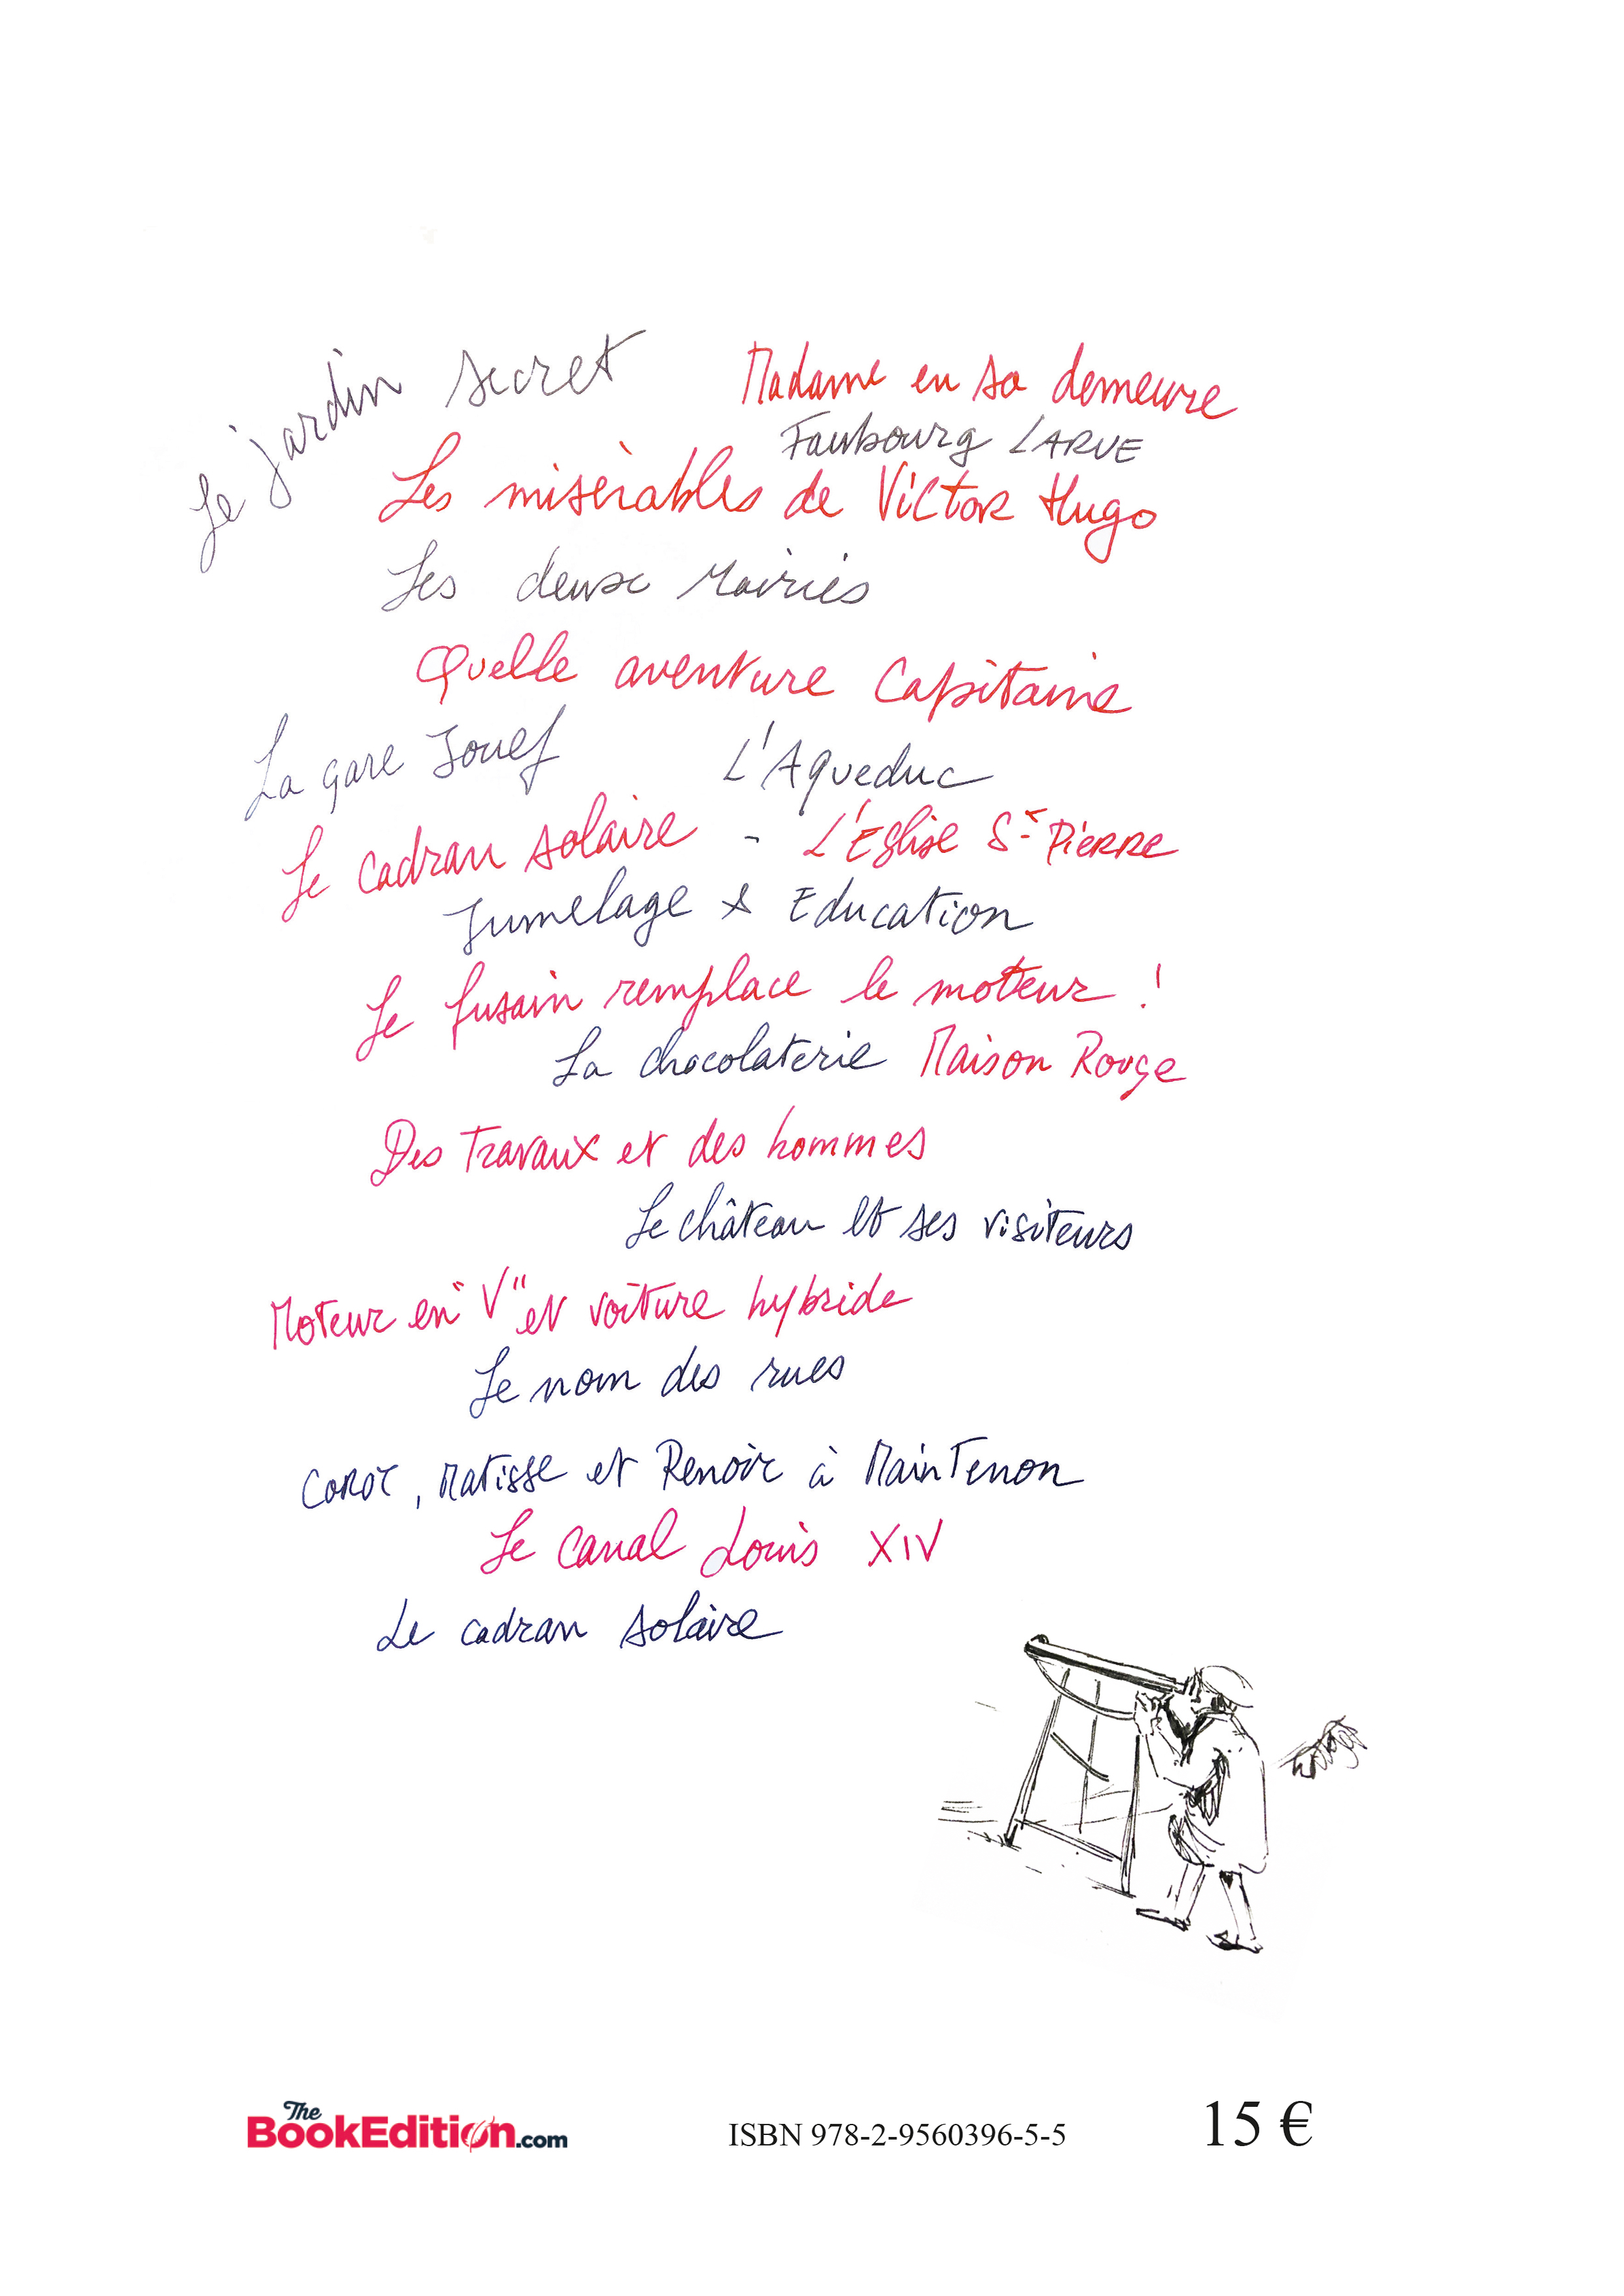 Le jardin secret
Madame en sa demeure
Faubourg LARUE
Les misérables de Victor Hugo
Les deux Mairies
Quelle aventure Capitaine
La gare Jouef
L'Aqueduc
Le cadran solaire - L'Eglise St Pierre
Jumelage & Education
Le fusain remplace le moteur !
La chocolaterie Maison Rouge
Des Travaux et des hommes
Le château et ses visiteurs
Moteur en "V" et voiture hybride
Le nom des rues
Corot, Matisse et Renoir à Maintenon
Le Canal Louis XIV
Le cadran solaire
The
BookEdition.com
ISBN 978-2-9560396-5-5
15 €